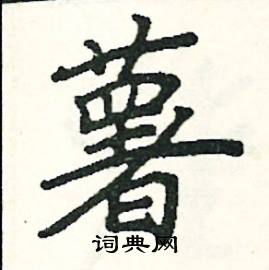 薯
词典网